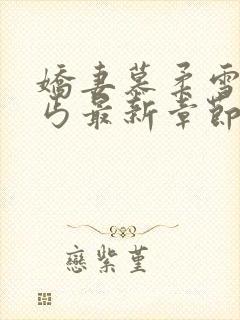 嬌妻慕柔雪
丂最新章節
戀紫堇